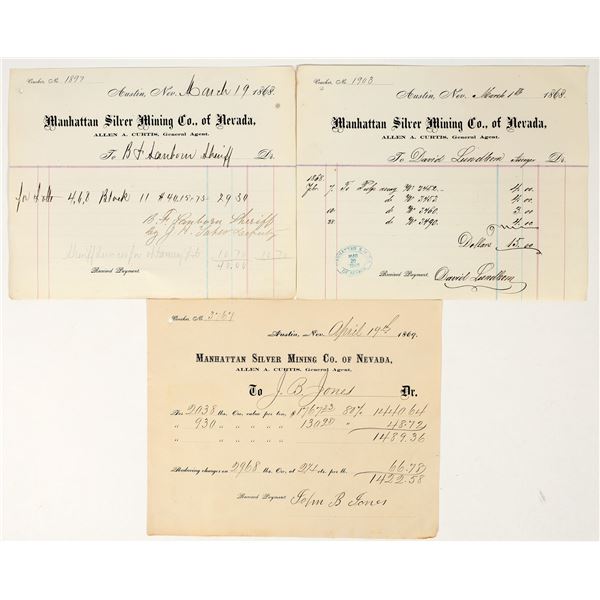 Voucher No. 1897
Austin, Nev. March 19 1868.
Manhattan Silver Mining Co., of Nevada,
ALLEN A. CURTIS, General Agent.
To B F Sanborn Sheriff Dr.
for Lotts 4,6,8 Block 11 $ 40.15.75 29 50
B. F. Sanborn Sheriff
by J H
10.70 10 70
Received Payment,
Voucher No. 1903
Austin, Nev. March 1st 1868.
Manhattan Silver Mining Co., of Nevada,
ALLEN A. CURTIS, General Agent.
To David Lundbom Assayer Dr.
1868
Feb. 7. To Pulp assay No 3452. 4.00
do No 3453 4.00
10. do No 3460. 3.00
28. do No 3490. 4.00
Dollars 15.00
Received Payment,
David Lundbom
Voucher No. 3767
Austin, Nev. April 19th 1869.
MANHATTAN SILVER MINING CO. OF NEVADA,
ALLEN A. CURTIS, General Agent.
To J. B. Jones Dr.
For 2038 lbs. Ore, value per ton, $ 1767 23 80% 1440.64
" 930 " " " " 130 28 " 48.72
" " " " " 1489.36
Reducing charges on 2968 lbs. Ore at 2 1/4 cts. per lb. 66.78
1422.58
Received Payment,
John B Jones